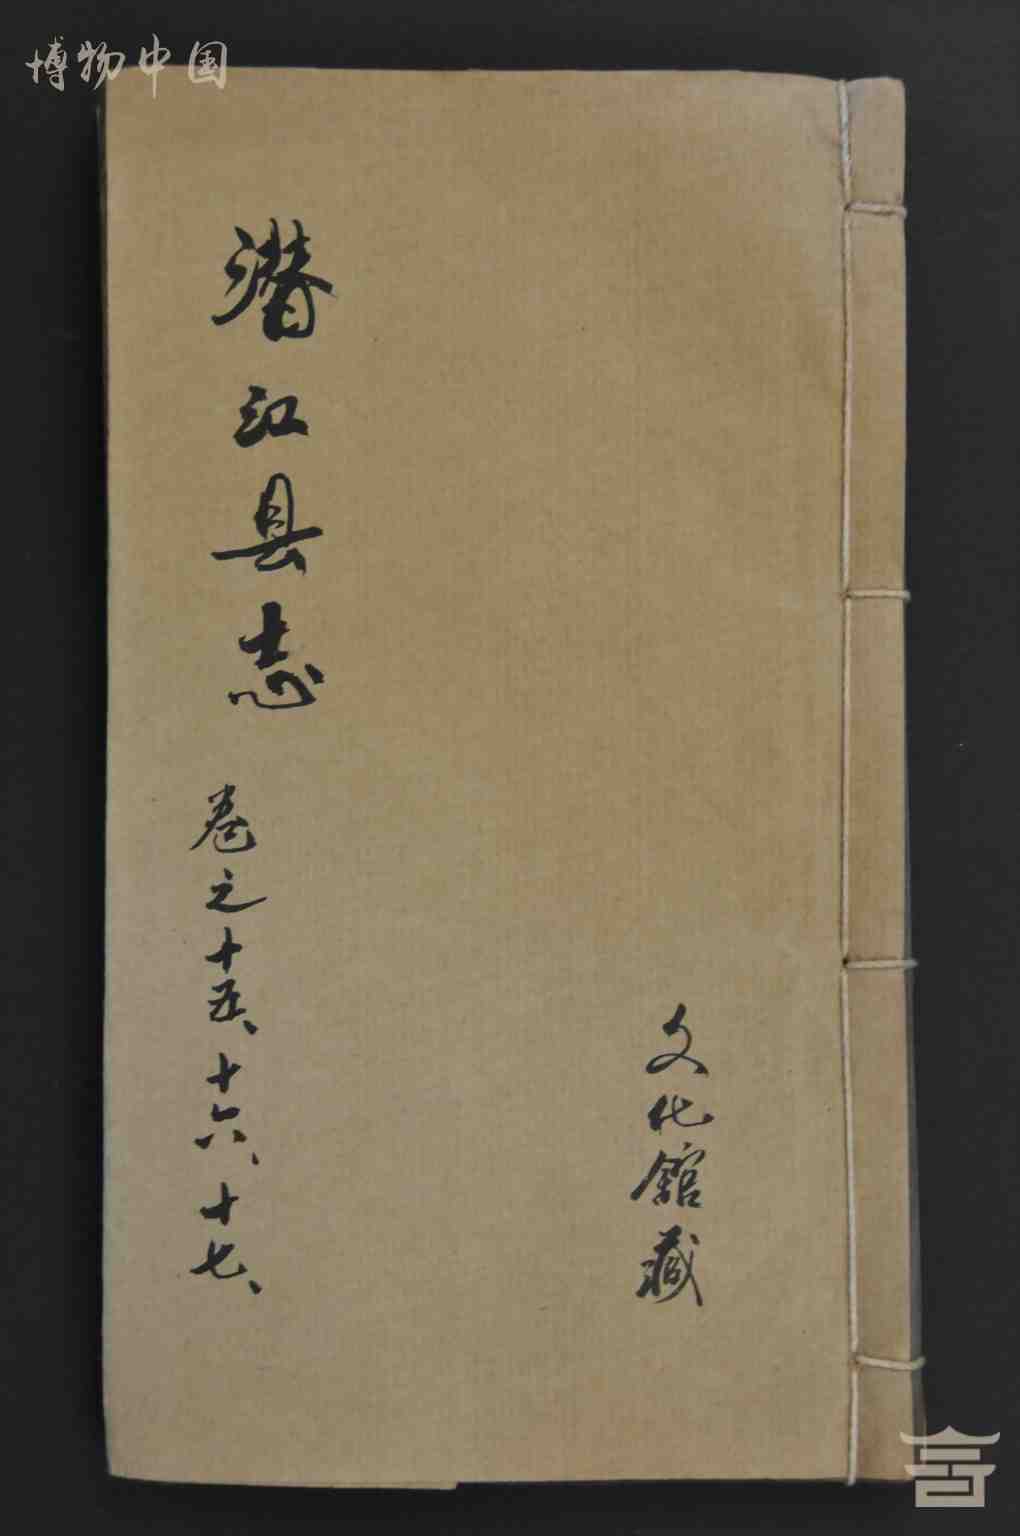 博物中国
潜江县志
卷之十五、十六、十七、
文化館藏